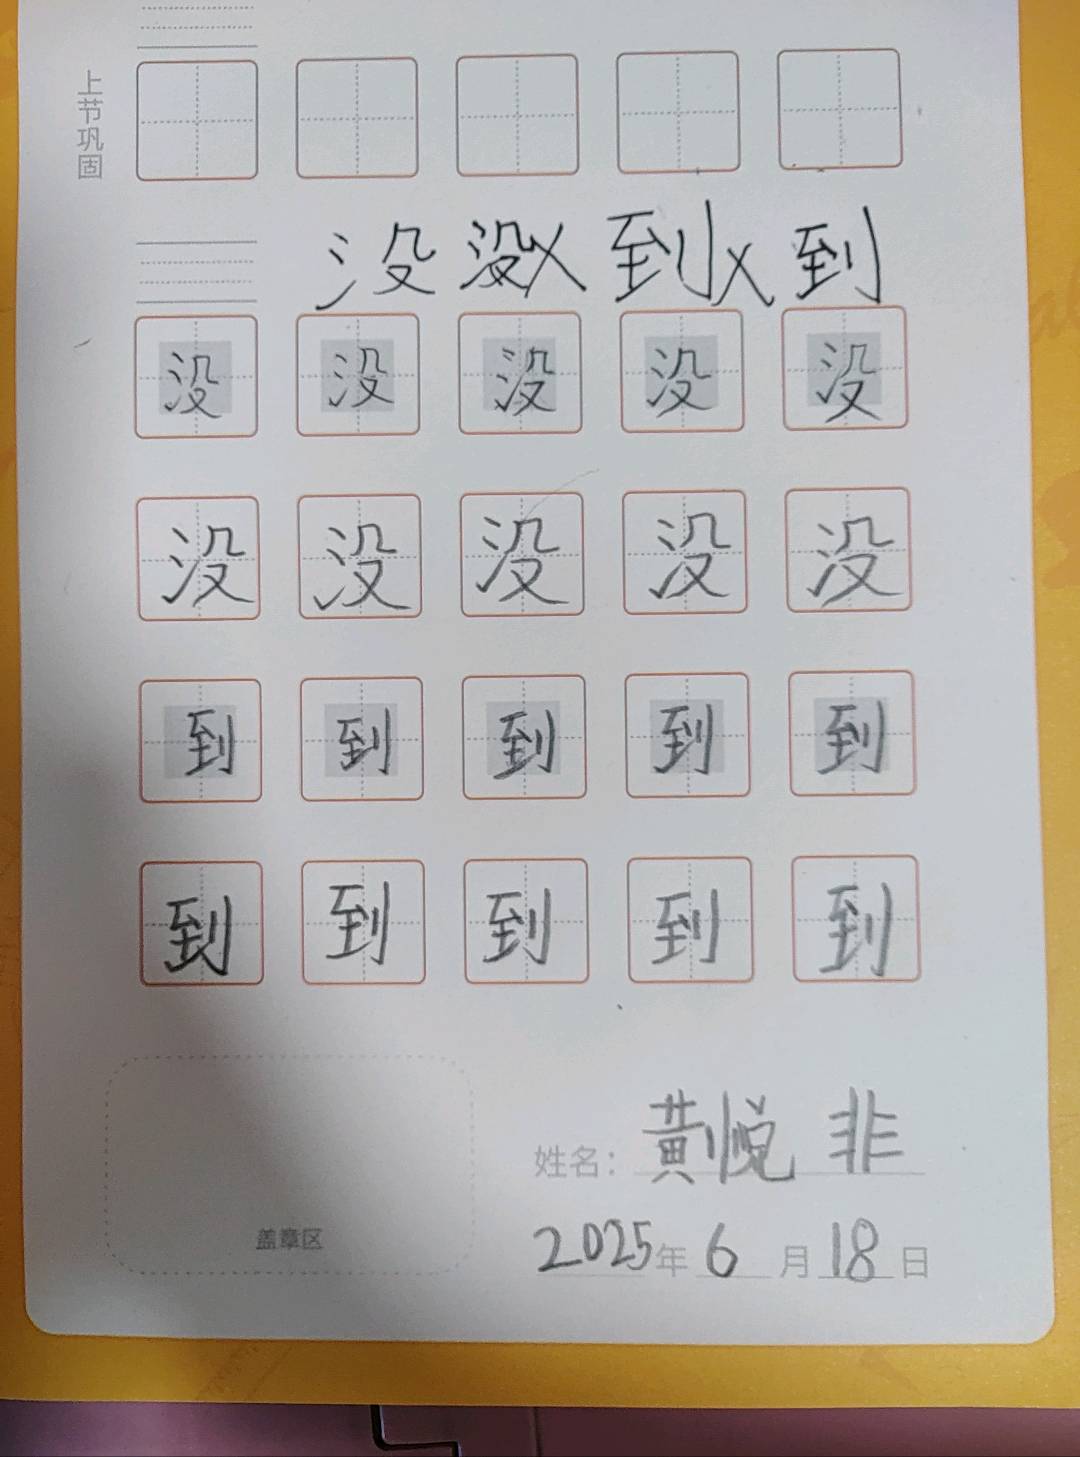 上节巩固
没 没 X 到 X 到
没 没 没 没 没
没 没 没 没 没
到 到 到 到 到
到 到 到 到 到
姓名：黄悦非
盖章区
2025年6月18日